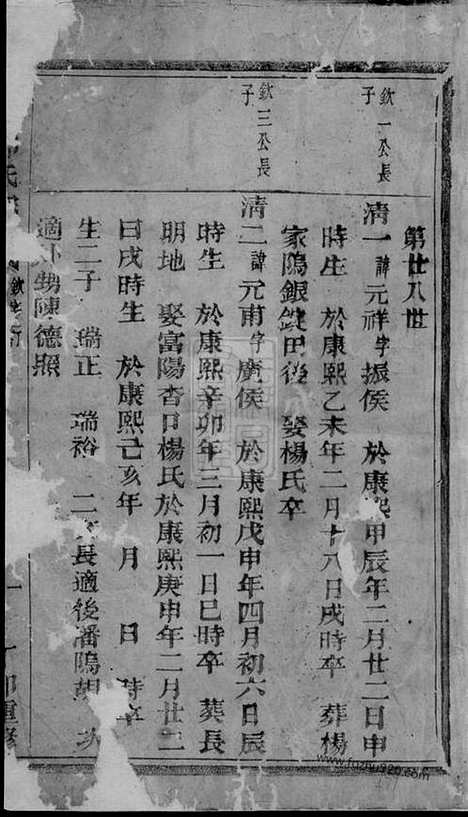 第廿八世
欽一公長子
清一諱元祥字振侯 於康熙甲辰年二月廿二日申
時生 於康熙乙未年二月十八日戌時卒 葬楊
家隖銀錠田後 娶楊氏卒
欽三公長子
清二諱元甫字廣侯 於康熙戊申年四月初六日辰
時生 於康熙辛卯年三月初一日巳時卒 葬長
明地 娶富陽杏口楊氏於康熙庚申年二月廿二
曰戌時生 於康熙己亥年 月 日 時卒
生二子 瑞正 瑞裕 二女長適後潘隖胡 次
適外甥陳德照
重修
www.fuzhu920.com